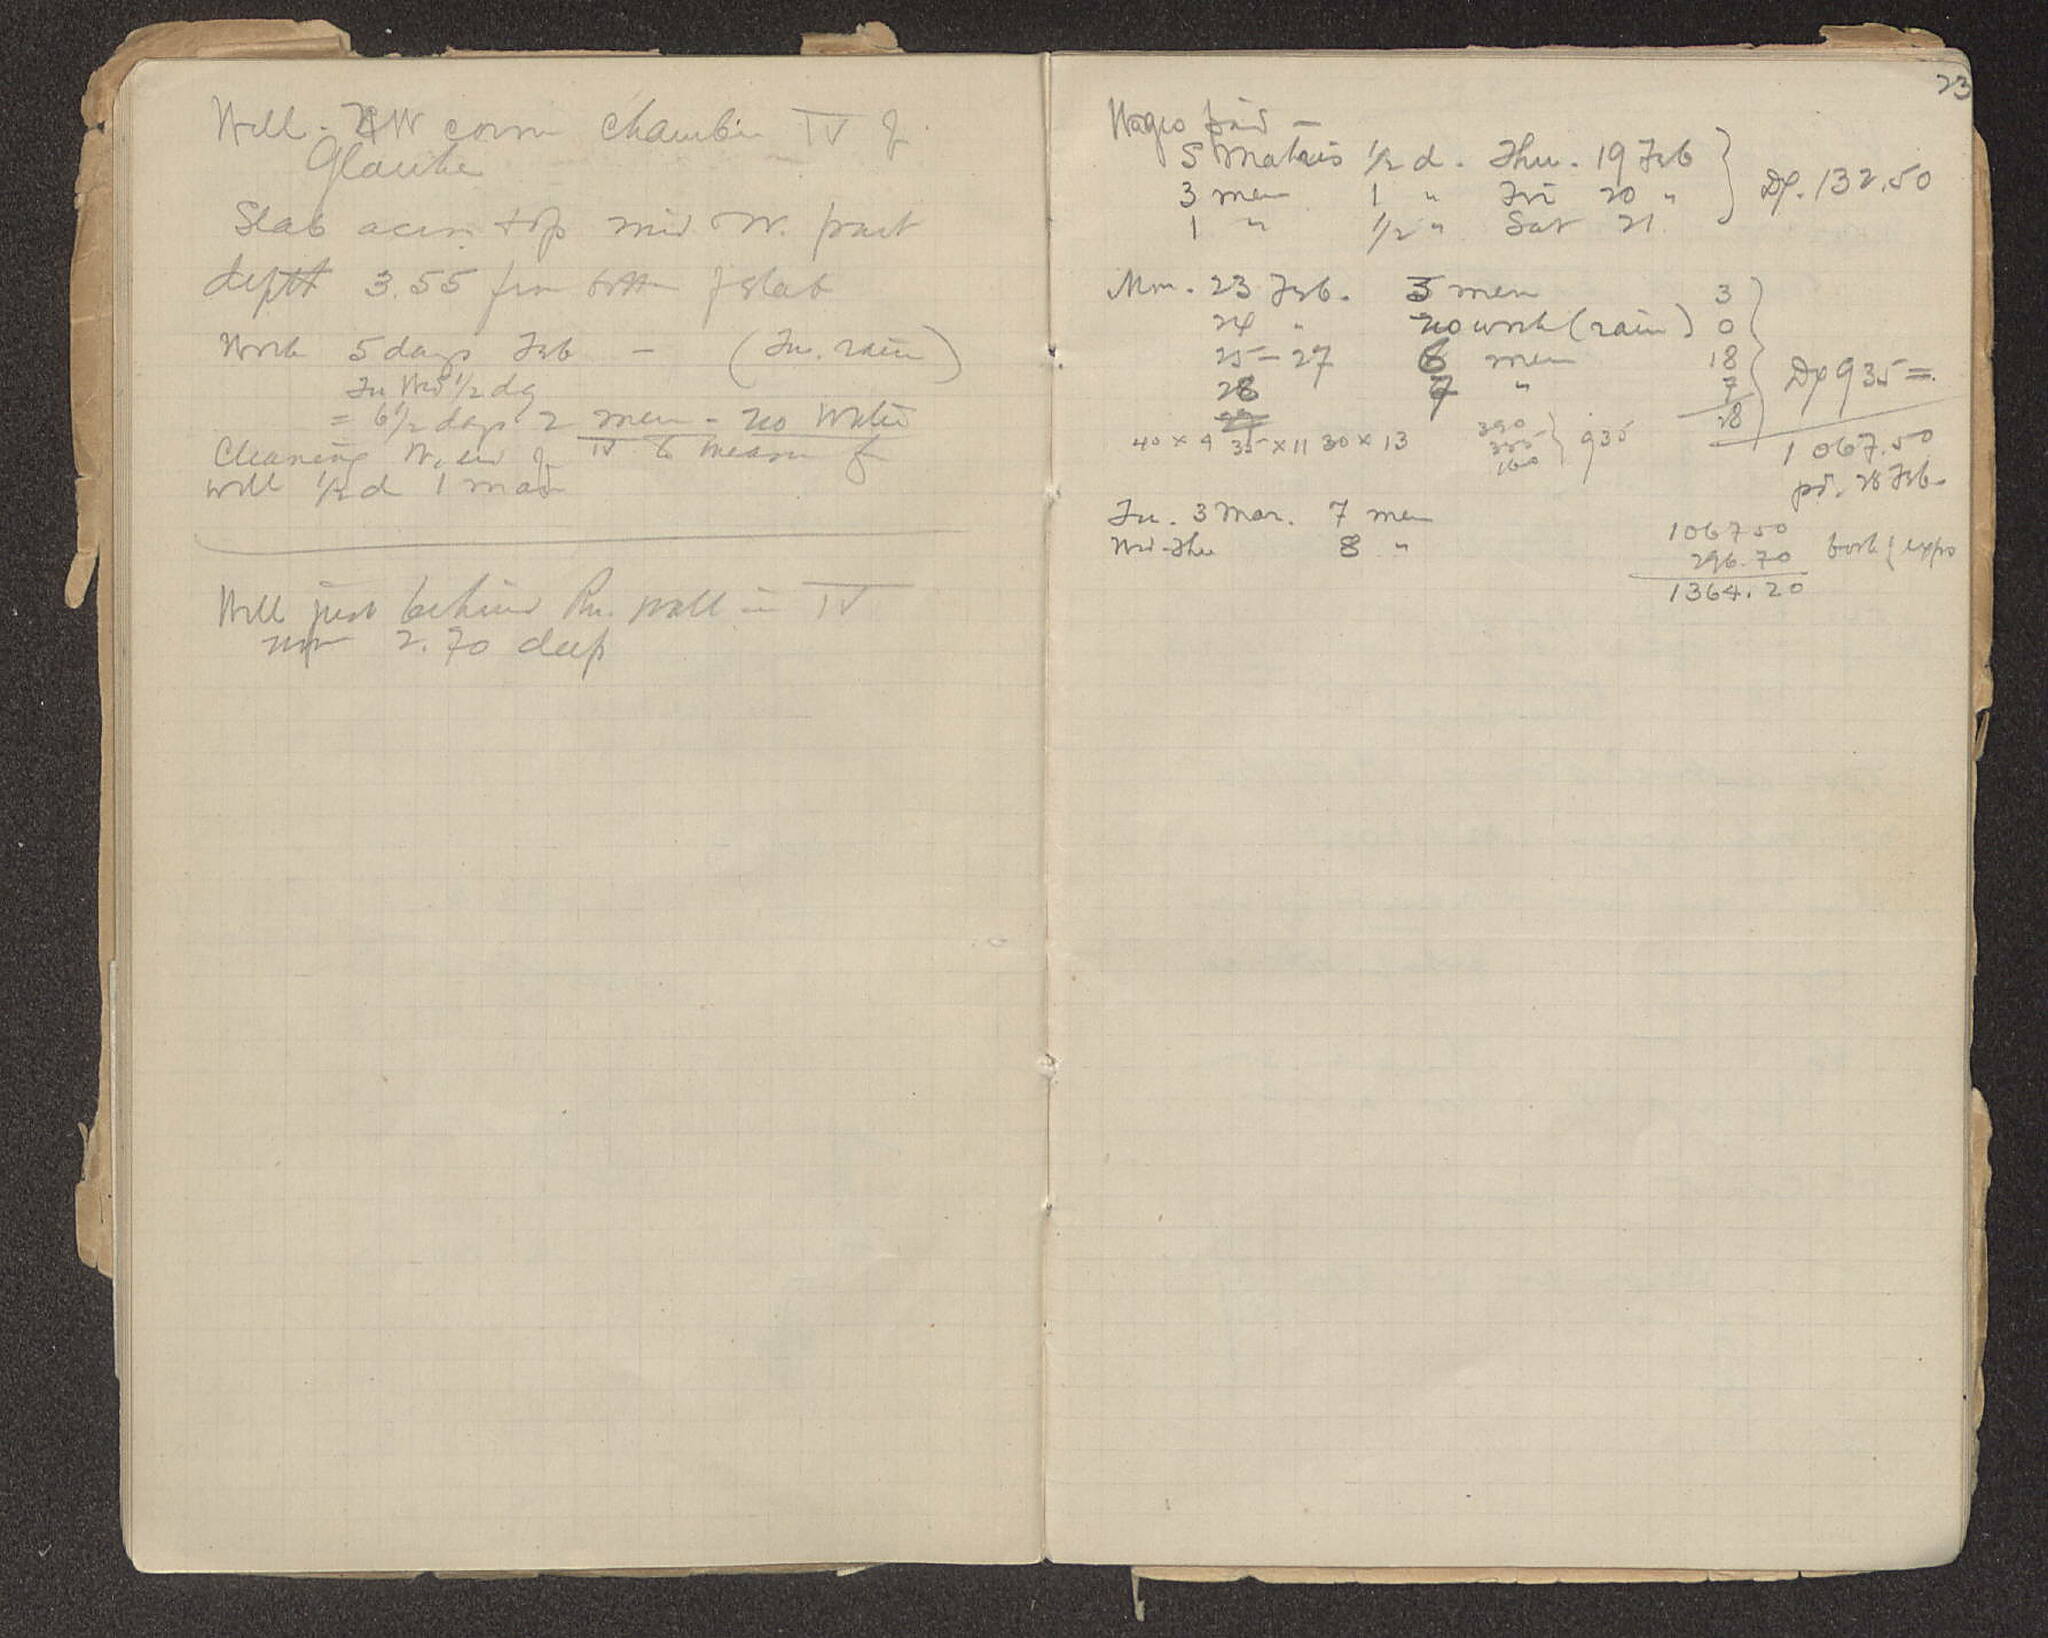 Well - NW corner chamber IV of
Glauke
Slab across top mid W. part
depth 3.55 from bottom of slab
Work 5 days Feb — (Tu. rain)
Tu Wed 1/2 day
= 6 1/2 days 2 men - no water
Cleaning W. end of IV to measure for
well 1/2 d 1 man
Well just behind Rn. wall in IV
now 2.70 deep
23
Wages paid —
S Matsis 1/2 d. Thu. 19 Feb
3 men 1 " Fri 20 " } Dx. 132.50
1 " 1/2 " Sat 21
Mon. 23 Feb. 3 men 3
24 " no work (rain) 0
25 - 27 6 men 18
28 7 " 7 } Dx 935 =
28
40 × 4 35 × 11 30 × 13 390 385 160 } 935
1067.50
pd. 28 Feb.
Tu. 3 Mar. 7 men
Wed-Thu 8 "
1067 50
296.70
1364.20